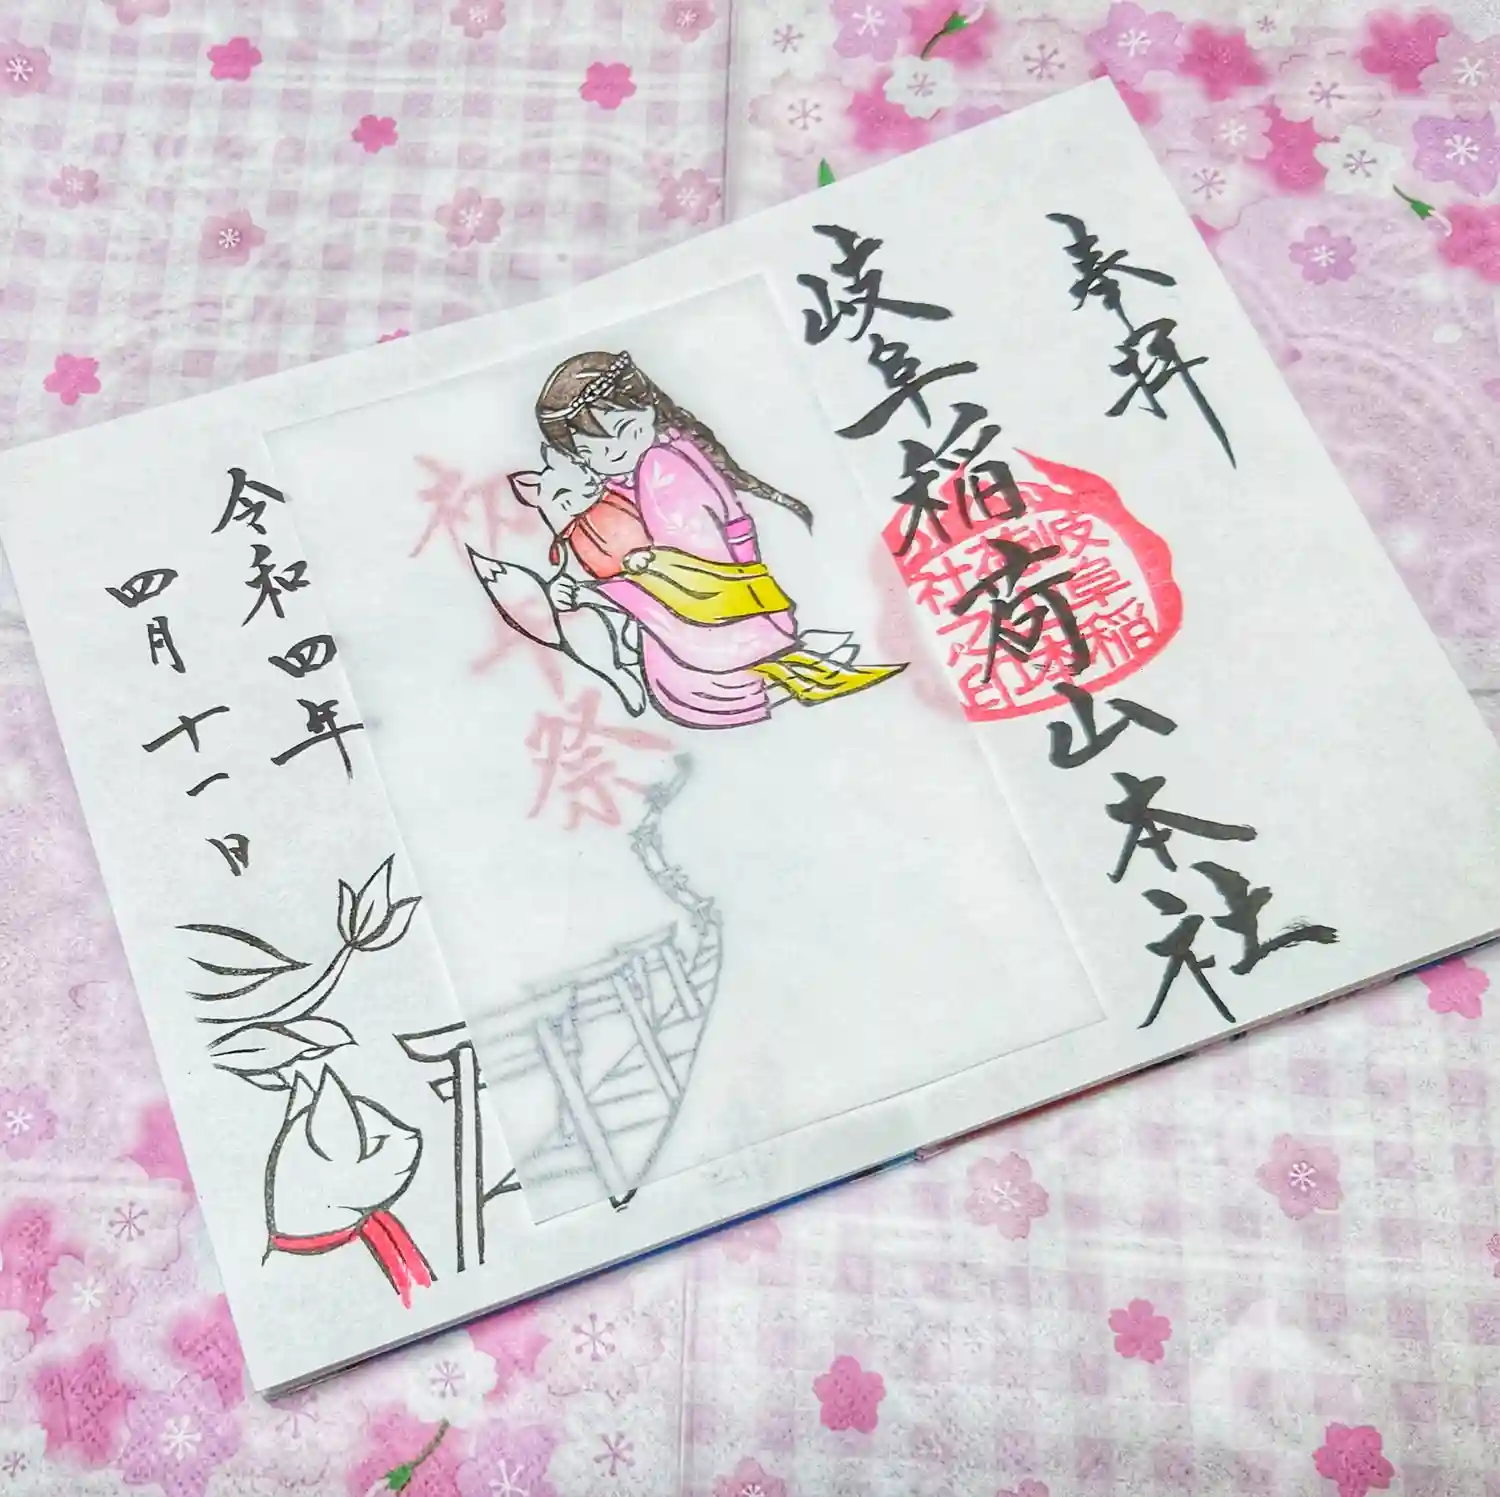 奉拝
岐阜稲荷山本社
岐阜稲
荷山本
社之印
初午祭
令和四年
四月十一日